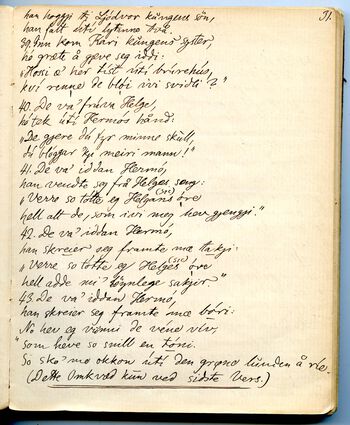 31.
han hoggji tɪ Ljódvor kungens són,
han fall úti lytanne två.
39. Inn kom Kári kungens syster,
hó græte å gjeve seg iddi:
"Hosi æ' her tist úti brúrehus,
kvi renne de blói ivi sviðti?"
40. De va' frúva Helge,
hó tek úti Hermós hånd:
"De gjere dú fyr minne skúll,
dú bloggar 'kji meiri mann!"
41. De va' iddan Hermó,
han vendte seg frå Helges seng:
"Verre so totte eg Helgans (sic) óre
hell alt de, som ivi meg hev gjengji."
42. De va' iddan Hermó,
han skreier seg framte mæ takji:
"Verre so totte eg Helges (sic) óre
hell adde mi' löynlege sakjir"
43. De va' iddan Hermó,
han skreier seg framte mæ bóri:
No hev eg vunni de véne vív,
"som héve so snill en tóni.
So sko' mo okkon úti den grøne lunden å ríe.
(Dette Omkvæd kun ved sidste Vers.)